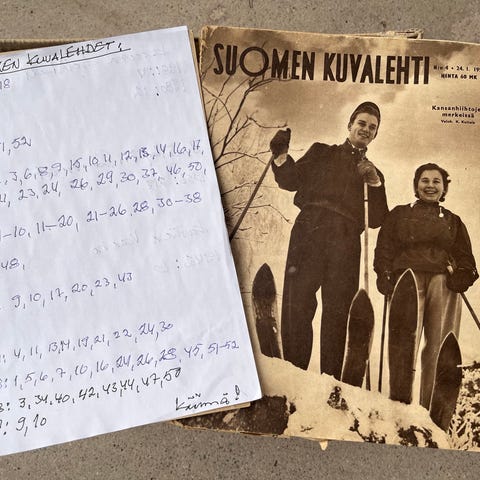 KUVALEHDET:
18
52
3, 6, 8, 9, 10, 11, 12, 13, 14, 16, 17,
23, 24, 26, 29, 30, 37, 46, 50,
-10, 11-20, 21-26, 28, 30-38
48,
9, 10, 17, 20, 23, 43
: 4, 11, 13, 14, 19, 21, 22, 24, 30
: 1, 5, 6, 7, 10, 16, 24, 26, 28, 45, 51-52
: 3, 34, 40, 42, 43, 44, 47, 50
: 9, 10
SUOMEN KUVALEHTI
N:o 4 • 24. 1. 19
HINTA 60 MK
Kansanhiihtoje
merkeissä
Valok. K.